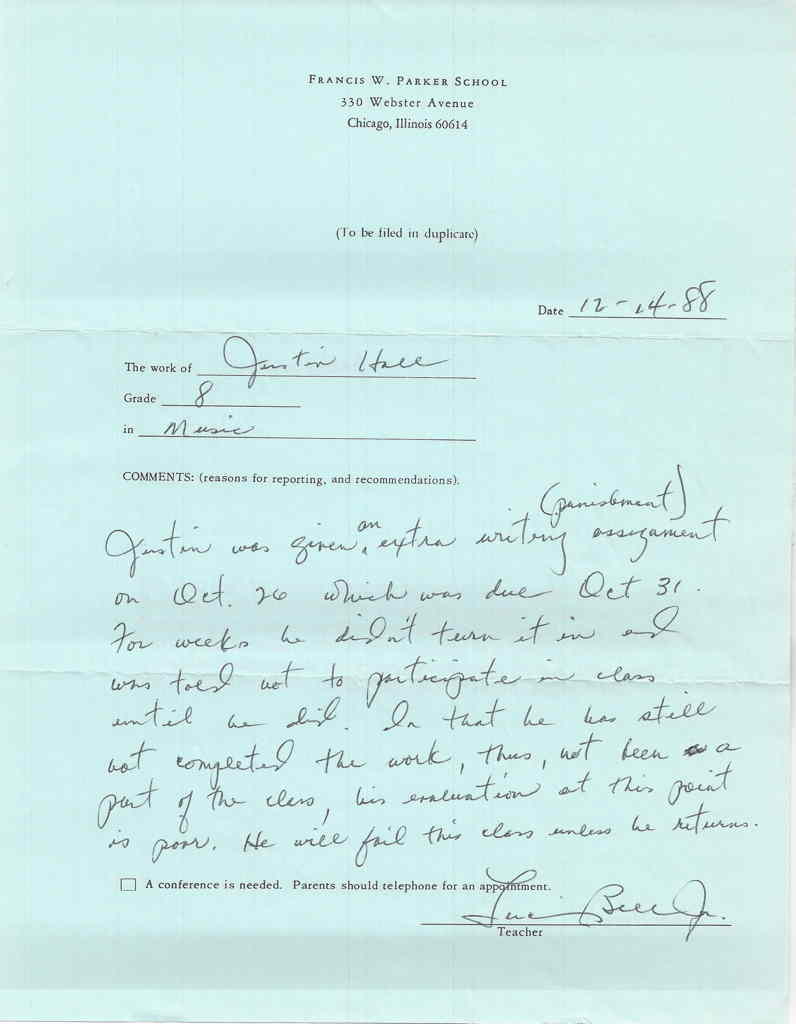 FRANCIS W. PARKER SCHOOL
330 Webster Avenue
Chicago, Illinois 60614
(To be filed in duplicate)
Date 12-14-88
The work of Justin Hall
Grade 8
in Music
COMMENTS: (reasons for reporting, and recommendations).
(punishment)
Justin was given an extra writing assignment
on Oct. 26 which was due Oct 31.
For weeks he didn't turn it in and
was told not to participate in class
until he did. In that he has still
not completed the work, thus, not been a
part of the class, his evaluation at this point
is poor. He will fail this class unless he returns.
A conference is needed. Parents should telephone for an appointment.
Bell Jr.
Teacher